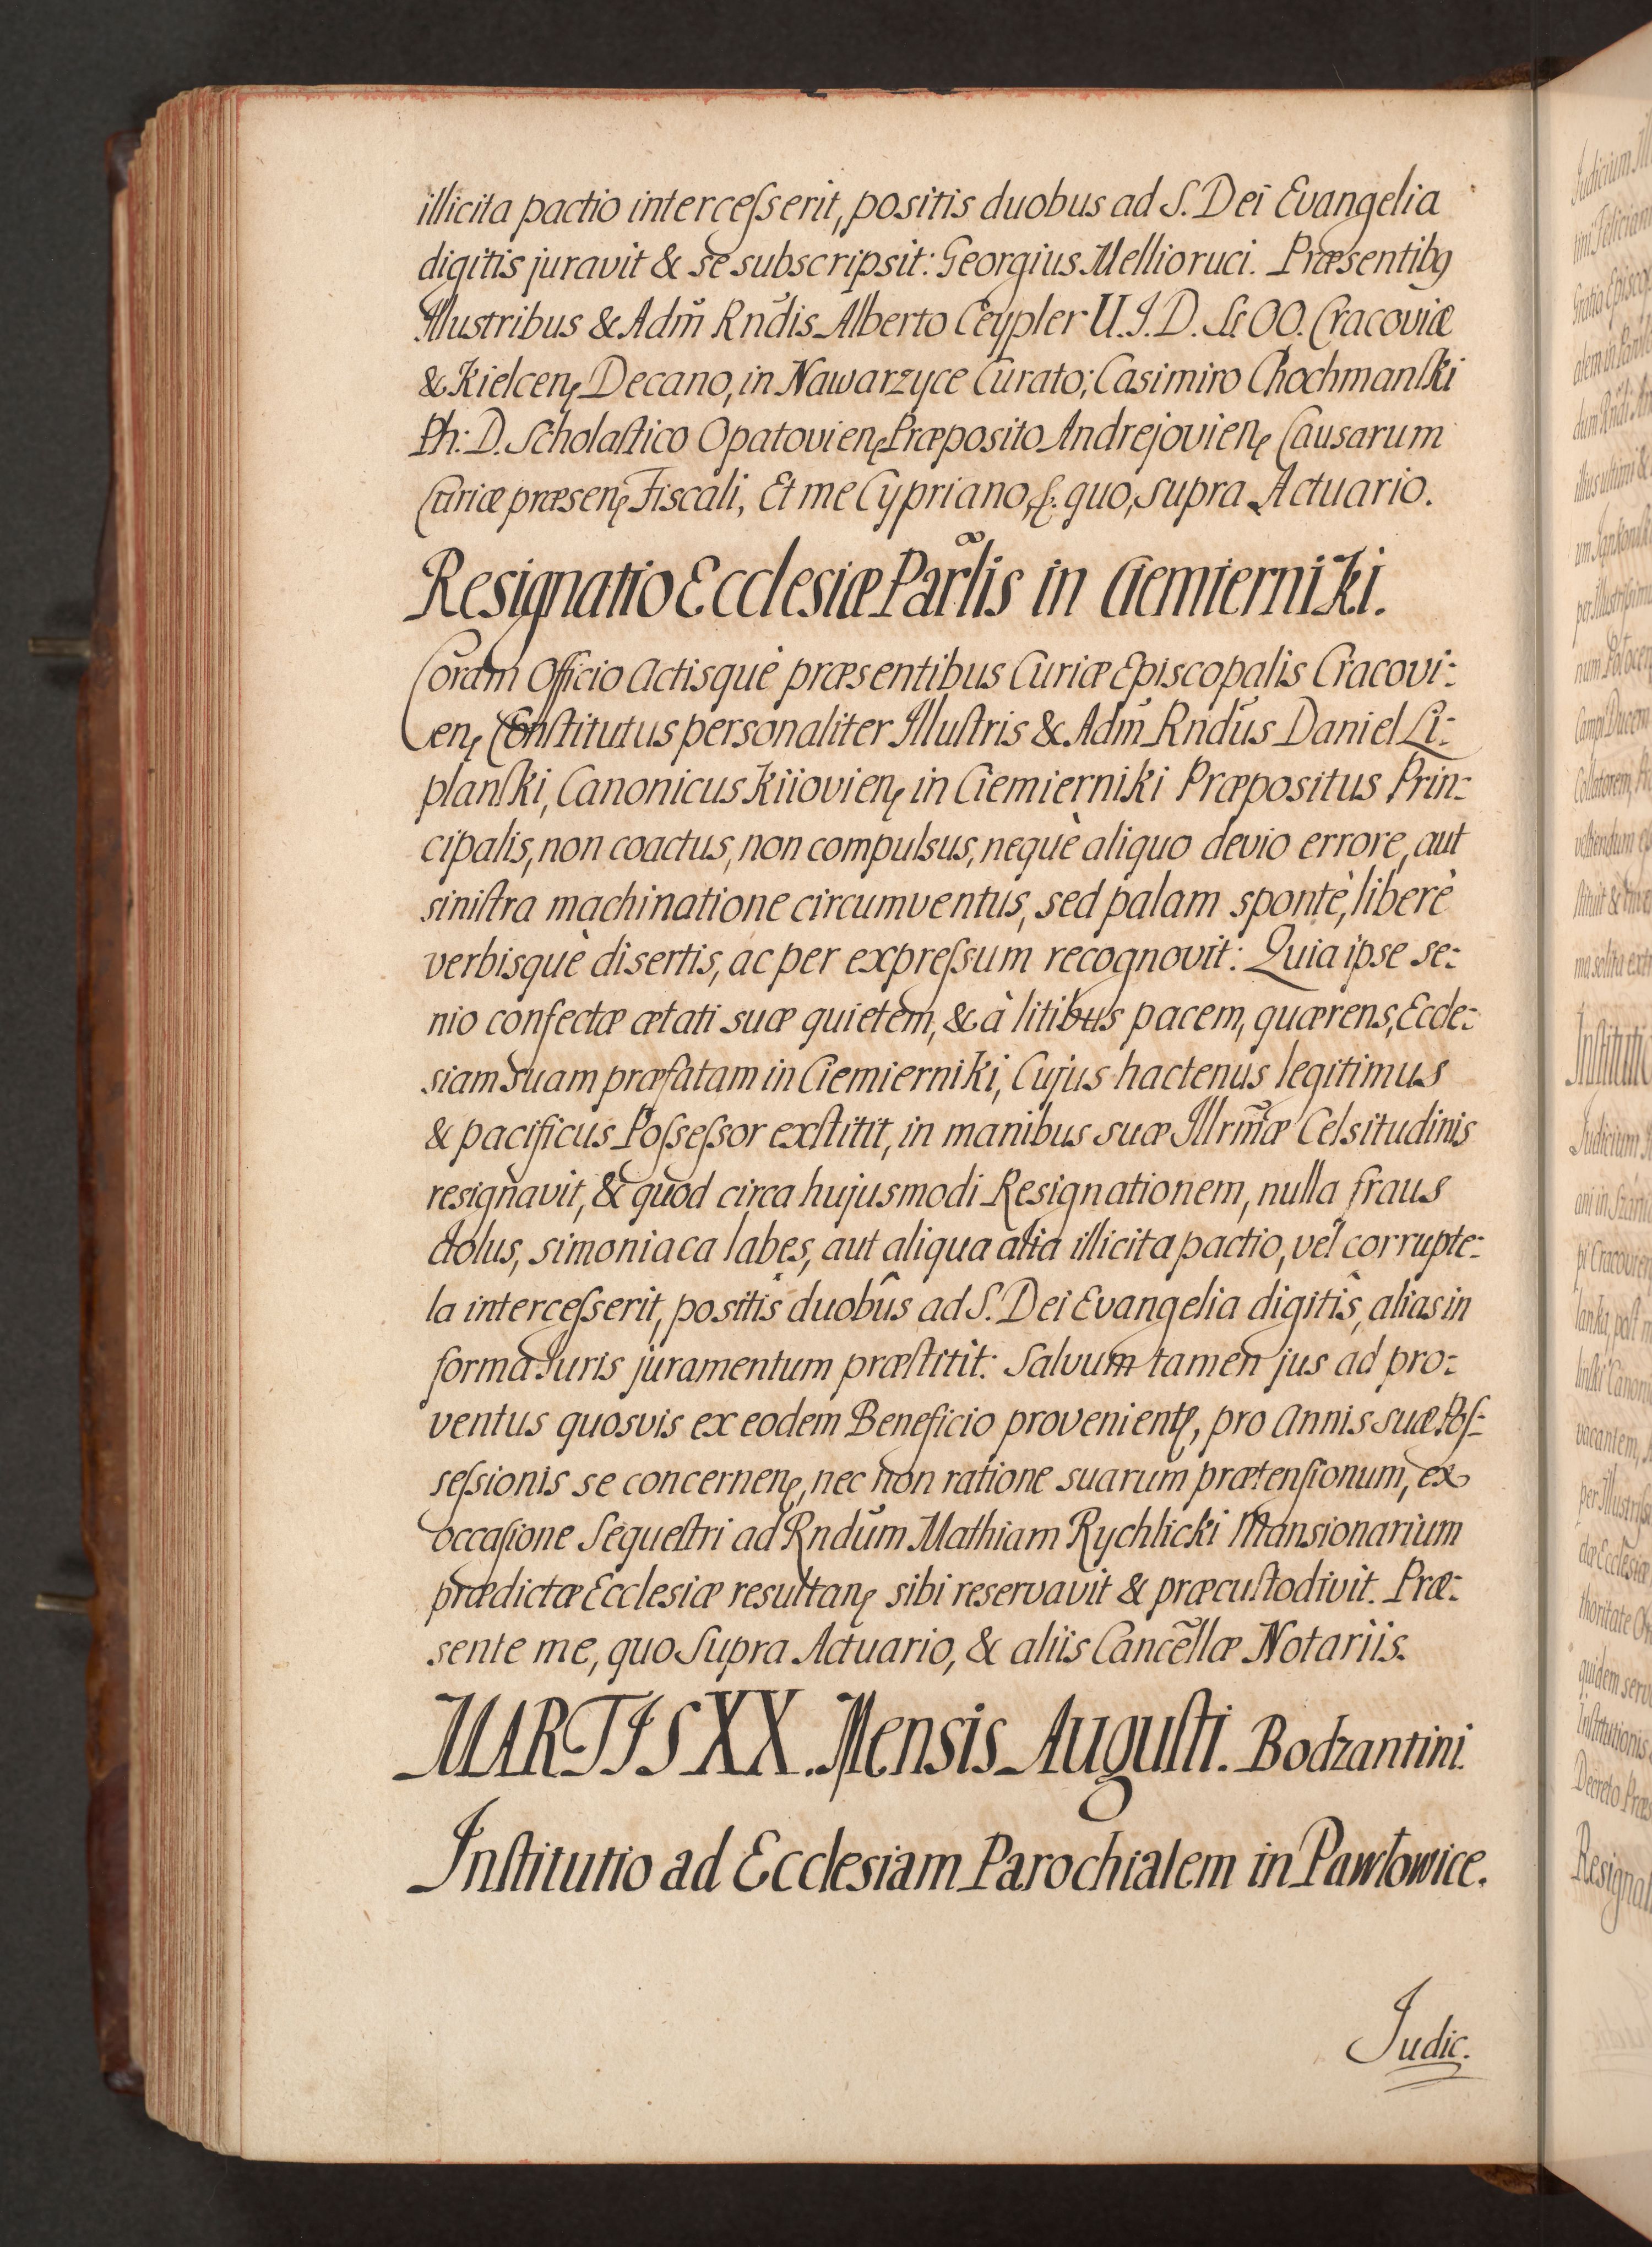 illicita pactio interceſserit, positis duobus ad S. Dei Evangelia
digitis juravit & se subscripsit: Georgius Mellioruci. Præsentibꝰ
Illustribus & Adm̃ Rñdis Alberto Ceypler U. J. D. SS OO. Cracoviæ
& Kielcenꝫ Decano, in Nawarzyce Curato; Casimiro Chochmanſki
Ph: D. Scholaſtico Opatovienꝫ Præposito Andrejovienꝫ Causarum
Curiæ præsenꝫ Fiscali, Et me Cypriano, quo, supra Actuario.
Resignatio Ecclesiæ Par̃lis in Ciemierniki.
Coram Officio Actisquè præsentibus Curiæ Episcopalis Cracovi:
enꝫ Conſtitutus personaliter Illuſtris & Adm̃ Rñdus Daniel Li:
planſki, Canonicus Kiiovienꝫ in Ciemierniki Præpositus Prin:
cipalis, non coactus, non compulsus, nequè aliquo devio errore, aut
siniſtra machinatione circumventus, sed palam spontè, liberè
verbisquè disertis, ac per expreſsum recognovit: Quia ipse se:
nio confectæ ætati suæ quietem, & à litibus pacem, quærens, Eccle:
siam suam præfatam in Ciemierniki, Cujus hactenus legitimus
& pacificus Poſseſsor exſtitit, in manibus suæ Illrm̃æ Celsitudinis
resignavit, & quod circa hujusmodi Resignationem, nulla fraus
dolus, simoniaca labes, aut aliqua alia illicita pactio, vel corrupte:
la interceſserit, positis duobûs ad S. Dei Evangelia digitis, alias in
forma Juris juramentum præſtitit: Salvum tamen jus ad pro:
ventus quosvis ex eodem Beneficio provenientꝫ, pro Annis suæ Poſ:
seſsionis se concernenꝫ, nec non ratione suarum prætenſionum, ex
occaſione Sequeſtri ad Rñdum Mathiam Rychlicki Mansionarium
prædictæ Ecclesiæ resultanꝫ sibi reservavit & præcuſtodivit. Præ:
sente me, quo Supra Actuario, & aliis Cancẽllæ Notariis.
MARTIS XX. Mensis Auguſti. Bodzantini.
Inſtitutio ad Ecclesiam Parochialem in Pawłowice.
Judic.